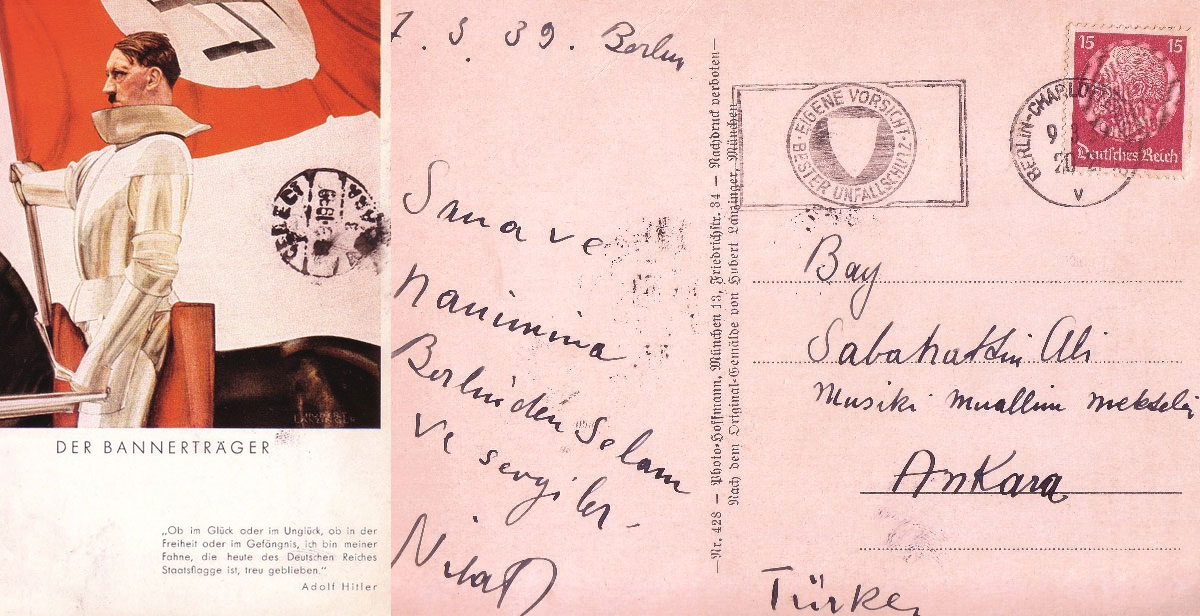 DER BANNERTRÄGER
„Ob im Glück oder im Unglück, ob in der
Freiheit oder im Gefängnis, ich bin meiner
Fahne, die heute des Deutschen Reiches
Staatsflagge ist, treu geblieben.“
Adolf Hitler
7. 3. 39. Berlin
Sana ve
hanımına
Berlinden Selam
ve sevgiler -
—Nr. 428 — Photo-Hoffmann, München 13, Friedrichstr. 34 — Nachdruck verboten—
Nach dem Original-Gemälde von Hubert Lanzinger, München
EIGENE VORSICHT
BESTER UNFALLSCHUTZ
BERLIN-CHARLO
9
20
v
15 15
Deutsches Reich
Bay
Sabahattin Ali
Musiki muallim mektebi
Ankara
Türkey